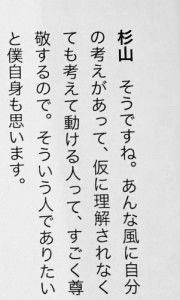 杉山　そうですね。あんな風に自分
の考えがあって、仮に理解されなく
ても考えて動ける人って、すごく尊
敬するので。そういう人でありたい
と僕自身も思います。